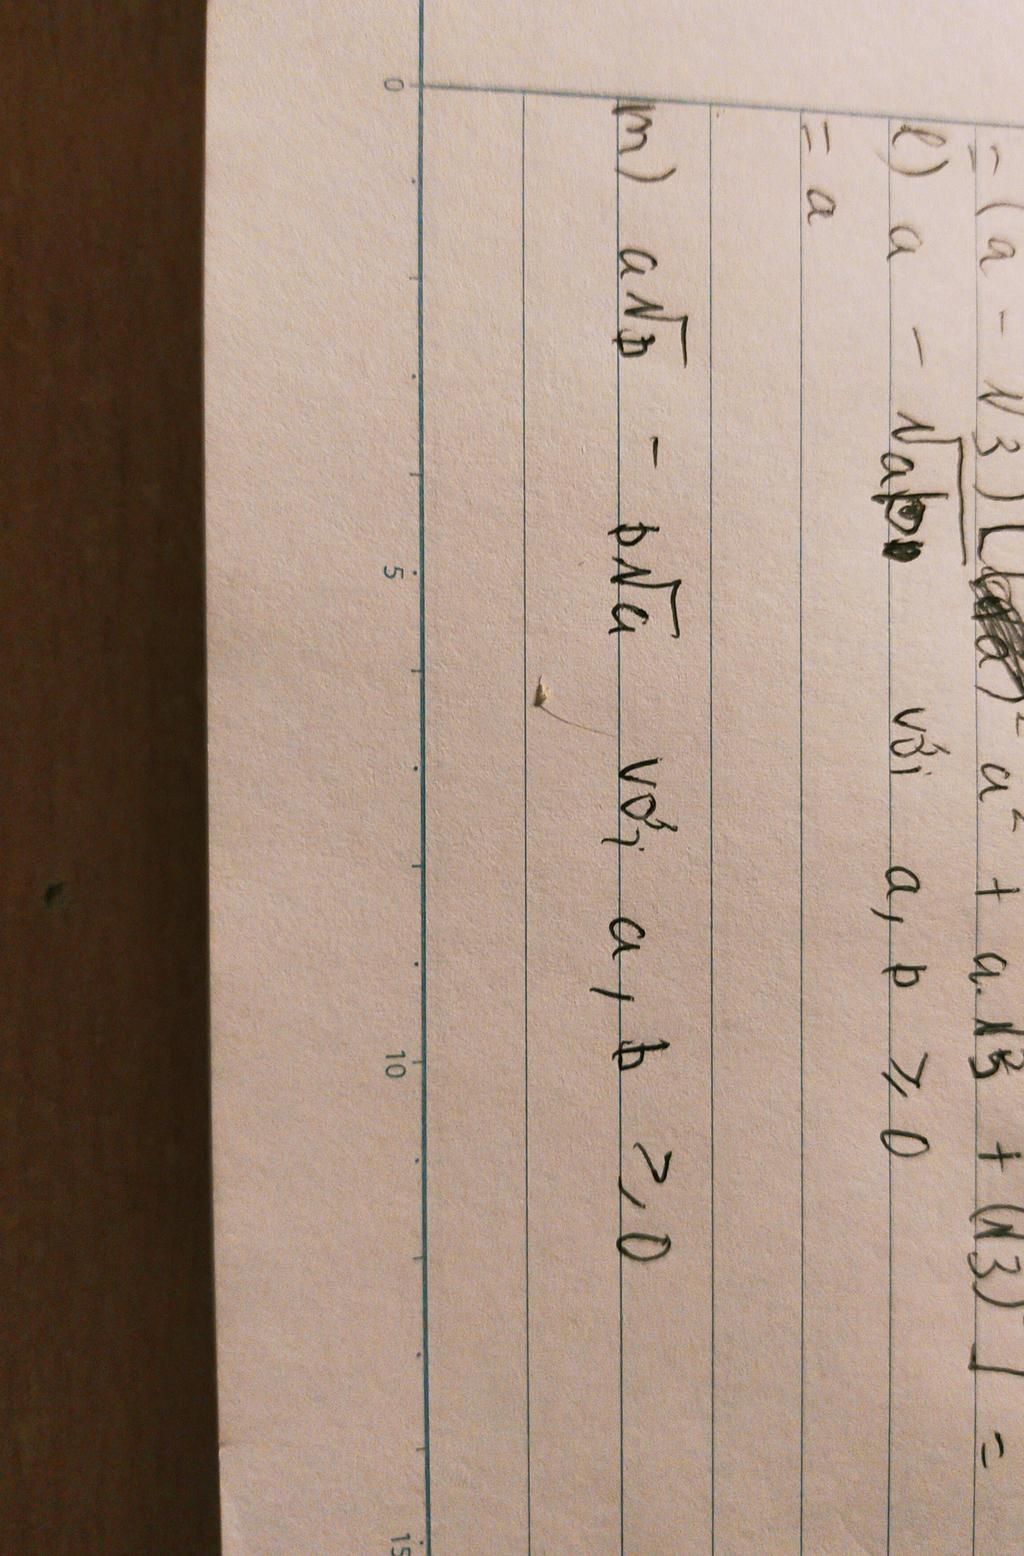 = (a - √3)[ a² + a.√3 + (√3) ] =
l) a - √ab với a, b ≥ 0
= a
m) a√b - b√a với a, b ≥ 0
0 5 10 15